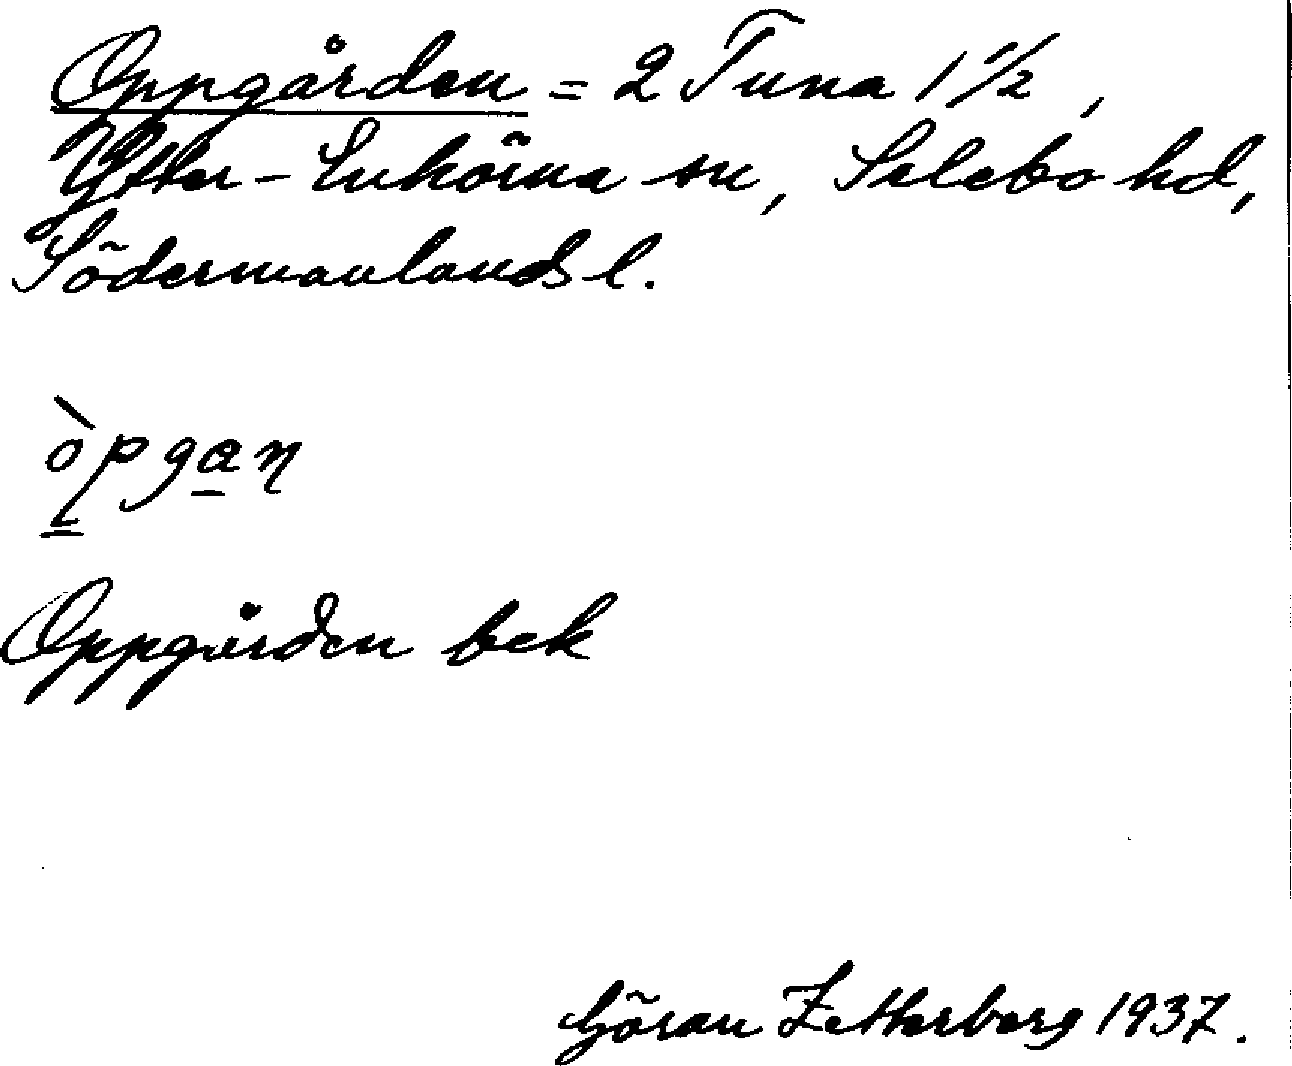 Oppgården = 2 Tuna 1 1/2,
Ytter-Enhörna sn, Selebo hd,
Södermanlands l.
òpgan
Oppgården bek
Göran Zetterberg 1937.